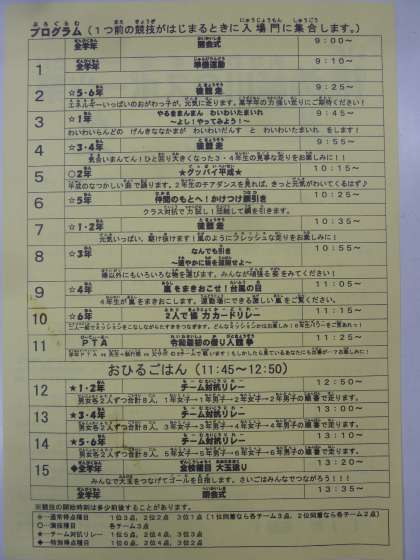 プログラム（１つ前の競技がはじまるときに入場門に集合します。）
全学年 開会式 ９：００～
1 全学年 準備運動 ９：１０～
2 ☆５・６年 徒競走 ９：２５～
エネルギーいっぱいのおがわっ子が、元気に走ります。高学年の力強い走りにご期待ください！
3 ☆１年 やるきまんまん わいわいたまいれ ９：４５～
～よし！やってみよう！～
わいわいらんどの げんきななかまが わいわいだんす と わいわいたまいれ をします！
4 ☆３・４年 徒競走 ９：５５～
気合いまんてん！ひと回り大きくなった３・４年生の見事な走りをお楽しみに！！
5 ○２年 ★グッバイ平成★ １０：１５～
平成のなつかしい曲で踊ります。２年生のチアダンスを見れば、きっと元気がわいてくるはず♪
6 ☆５年 仲間のもとへ！かけつけ綱引き １０：２５～
クラス対抗で力試し！団結して綱を引きます。
7 ☆１・２年 徒競走 １０：３５～
元気いっぱい、駆け抜けます！風のようにフレッシュな走りをお楽しみに！
8 ☆３年 なんでも引き １０：５５～
～速やかに物を運搬せよ～
綱以外にもいろいろな物を運びます。みんなが頑張る姿をみてください！
9 ☆４年 嵐をまきおこせ！台風の目 １１：０５～
４年生が嵐をまきおこします。運動場にできる激しい嵐をご覧ください。
10 ☆６年 ２人で協力カードリレー １１：１５～
11 ＰＴＡ 令和最初の借り人競争 １１：２５～
おひるごはん（１１：４５～１２：５０）
12 ★１・２年 チーム対抗リレー １２：５０～
男女各２人ずつ合計８人，１年女子→１年男子→２年女子→２年男子の順番で走ります。
13 ★３・４年 チーム対抗リレー １３：００～
男女各２人ずつ合計８人，３年女子→３年男子→４年女子→４年男子の順番で走ります。
14 ★５・６年 チーム対抗リレー １３：１０～
男女各２人ずつ合計８人，５年女子→５年男子→６年女子→６年男子の順番で走ります。
15 ◆全学年 全校種目 大玉送り １３：２０～
みんなで大玉をつなげてゴールを目指します。さいごはみんなでつながろう！！！
全学年 閉会式 １３：３５～
※競技の開始時刻は多少前後することがあります。
☆…通常得点種目 １位３点，２位２点 ３位１点（１位同着なら各チーム３点，２位同着なら各チーム２点）
○…演技種目 各チーム３点
★…チーム対抗リレー １位６点，２位４点，３位２点
◆…特別得点種目 １位６点，２位４点，３位２点